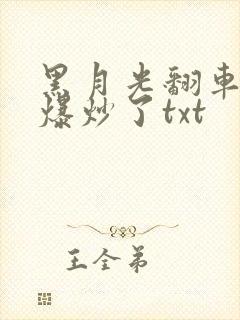 黑月光翻车
爆炒了txt
王全弟